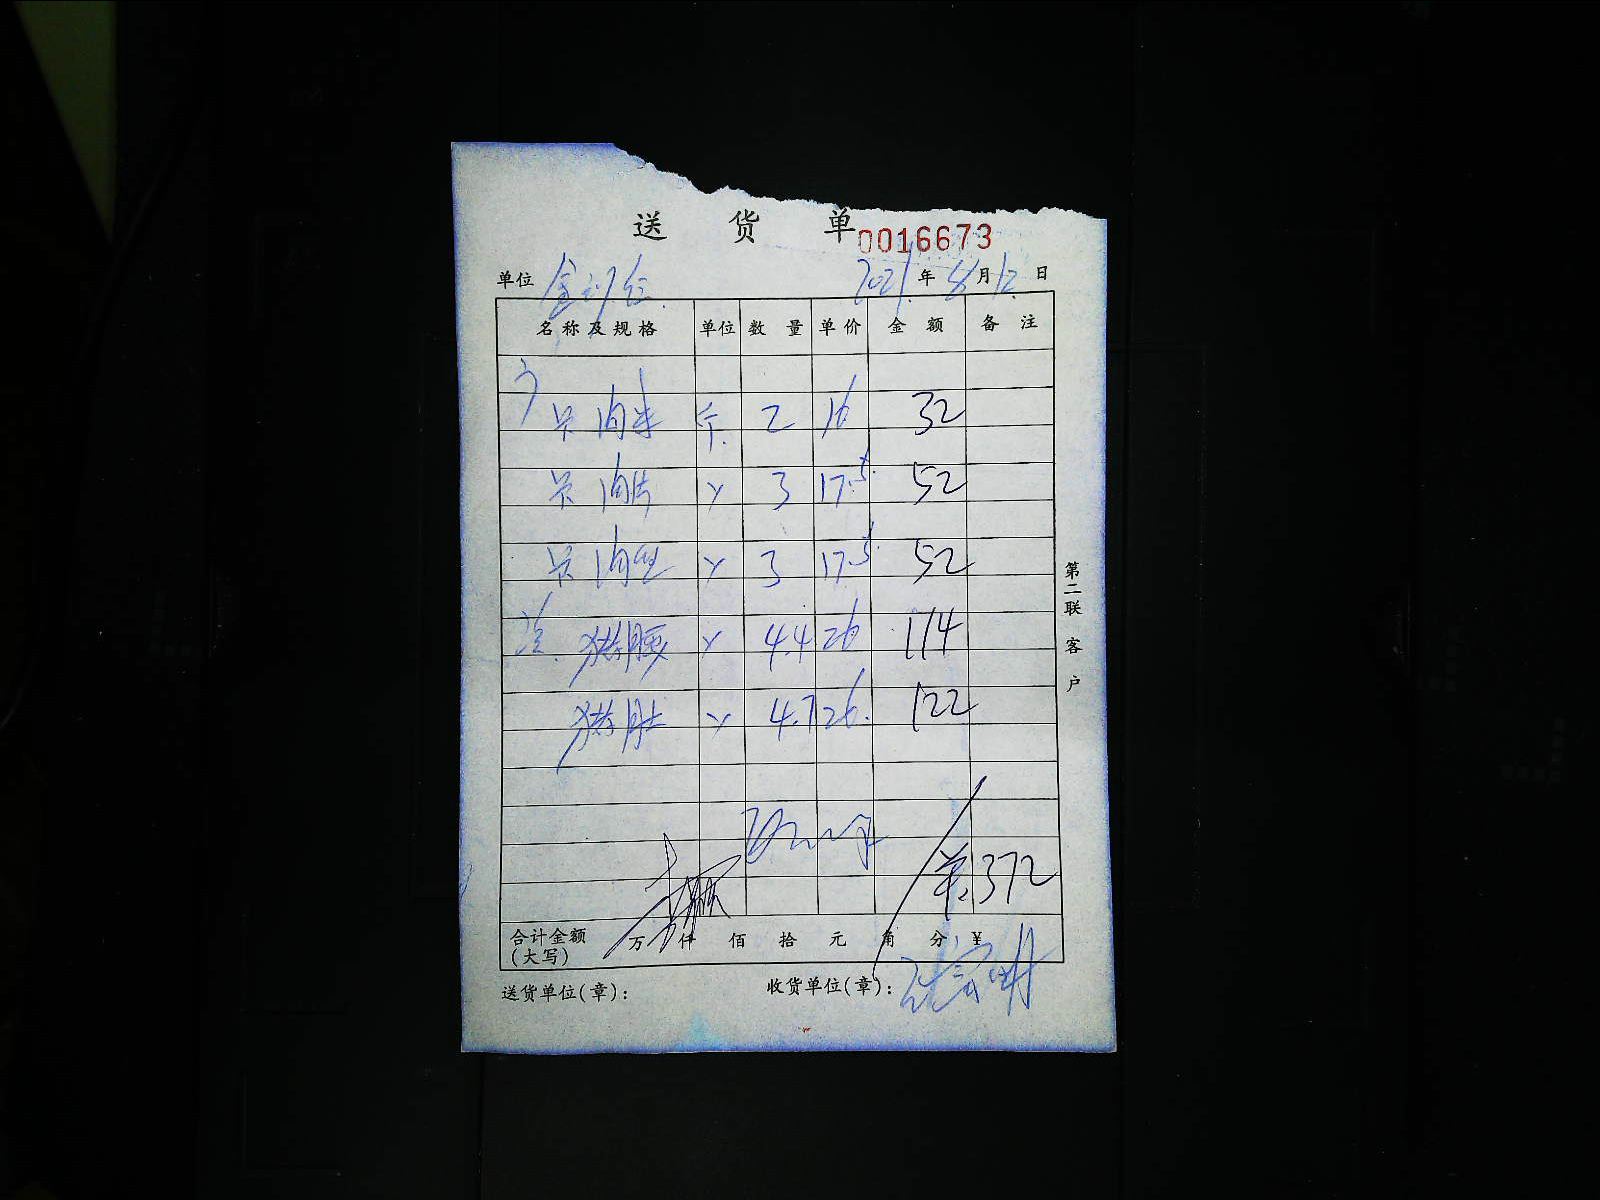 送 货 单 0016673
单位 2021年 8月12日
名称及规格 单位 数 量 单价 金 额 备 注
肉半 斤 2 16 32
肉片 〃 3 17.5 52
肉丝 〃 3 17.5 52
猪腰 〃 4.4 26 114
猪肚 〃 4.7 26. 122
羊372
合计金额 万 仟 佰 拾 元 角 分 ¥
(大写)
送货单位(章): 收货单位(章):
第二联 客户